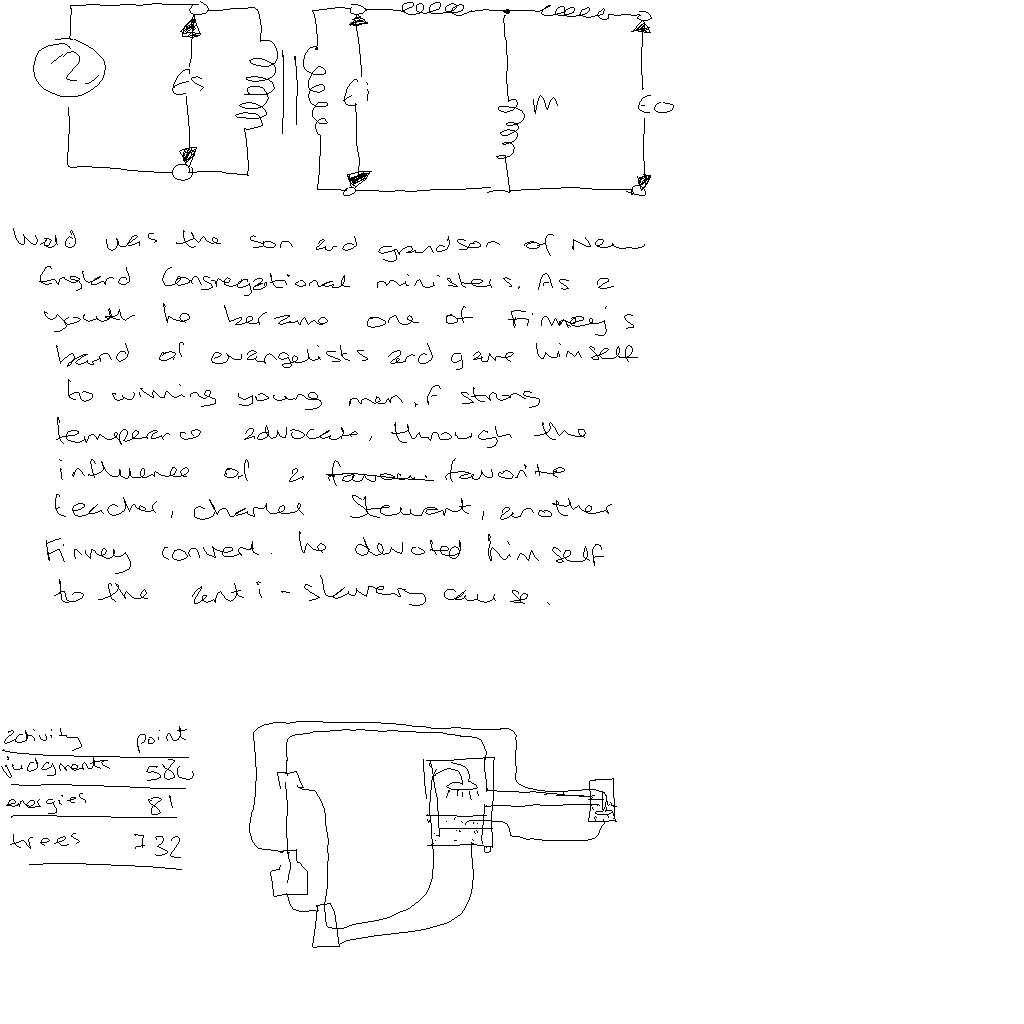 Es
Ei
M
Eo
Weld was the son and grandson of New
England Congregational ministers. As a
youth he became one of Finney's
band of evangelists and gave himself
to winning young men. A strong
temperance advocate, through the
influence of a favorite
teacher, Charles Stewart, another
Finney convert. he devoted himself
to the anti-slavery cause.
activity point
judgments
energies 81
trees 732